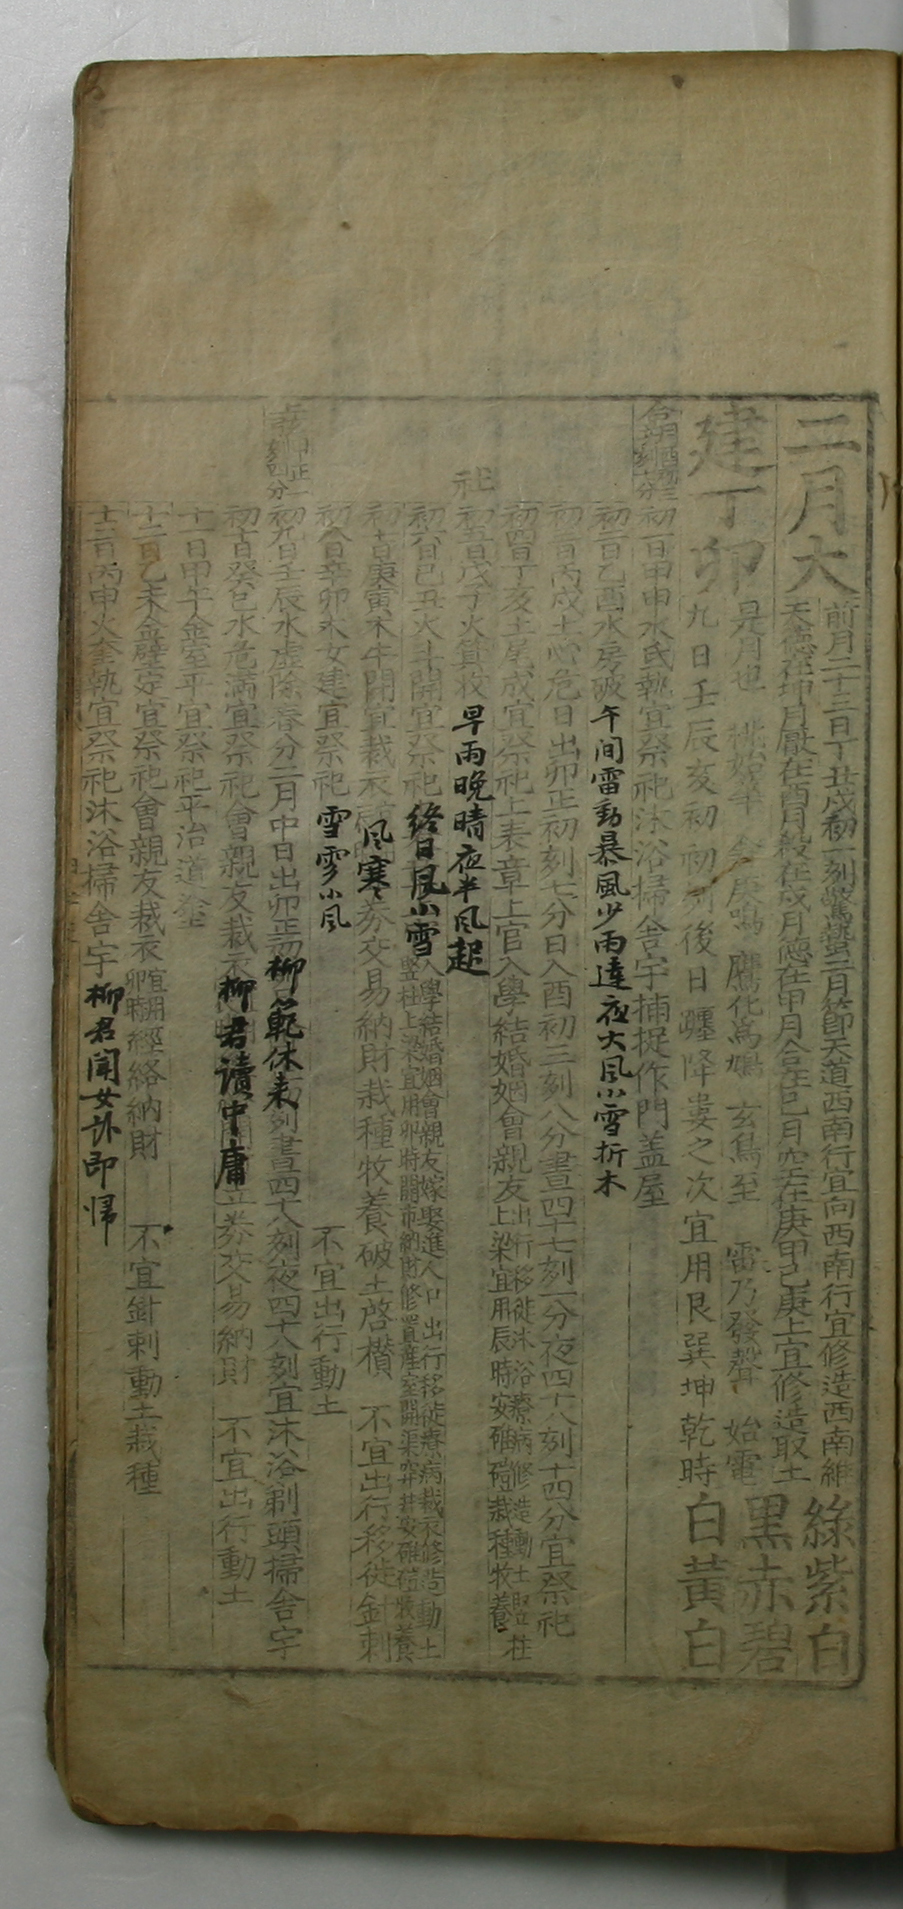 二月大
前月二十三日丁丑戌初一刻驚蟄二月節天道西南行宜向西南行宜修造西南維
天德在坤月厭在酉月殺在戌月德在甲月合在己月空在庚甲己庚上宜修造取土
綠紫白
建丁卯
是月也 桃始華 倉庚鳴 鷹化爲鳩 玄鳥至 雷乃發聲 始電
黑赤碧
九日壬辰亥初初刻後日躔降婁之次宜用艮巽坤乾時
白黃白
初一日甲申水氐執宜祭祀沐浴掃舍宇捕捉作門盖屋
初二日乙酉水房破 午間雷動暴風少雨達夜大風小雪折木
初三日丙戌土心危日出卯正初刻七分日入酉初三刻八分晝四十七刻一分夜四十八刻十四分宜祭祀
初四日丁亥土尾成宜祭祀上表章上官入學結婚姻會親友
出行移徙沐浴療病修造動土竪柱
上梁宜用辰時安碓磑栽種牧養
社
初五日戊子火箕收 早雨晚晴夜半風起
初六日己丑火斗開宜祭祀 終日風小雪
入學結婚姻會親友嫁娶進人口出行移徙療病裁衣修造動土
竪柱上梁宜用卯時開市納財修置產室開渠穿井安碓磑牧養
初七日庚寅木牛閉宜裁衣 風寒 券交易納財栽種牧養破土啓欑 不宜出行移徙針刺
初八日辛卯木女建宜祭祀 雪雰小風 不宜出行動土
初九日壬辰水虛除春分二月中日出卯正初 柳範休来 刻晝四十八刻夜四十八刻宜沐浴剃頭掃舍宇
初十日癸巳水危滿宜祭祀會親友裁衣 柳君讀中庸 立券交易納財 不宜出行動土
十一日甲午金室平宜祭祀平治道塗
十二日乙未金壁定宜祭祀會親友裁衣
宜用
卯時
經絡納財 不宜針刺動土栽種
十三日丙申火奎執宜祭祀沐浴掃舍宇 柳君聞女訃即帰